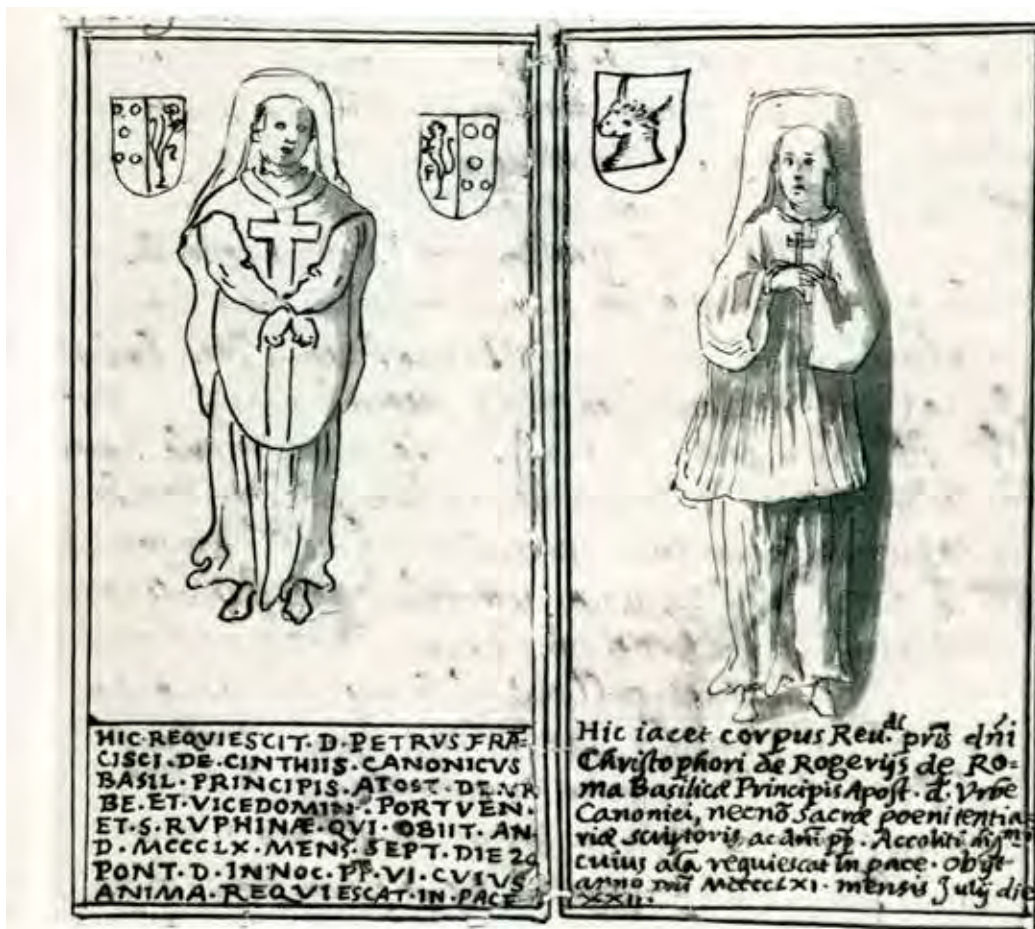 HIC·REQVIESCIT·D·PETRVS FRĀ
CISCI·DE·CINTHIIS·CANONICVS
BASIL·PRINCIPIS·APOST·DE VR
BE·ET·VICEDOMIN·PORTVEN·
ET·S·RVPHINÆ·QVI·OBIIT·AN·
D·MCCCLX·MENS·SEPT·DIE 20
PONT·D·INNOC·PP·VI·CVIVS
ANIMA·REQVIESCAT·IN·PACE
Hic iacet corpus Reu. pris dni
Christophori de Rogerijs de Ro=
ma Basilicæ Principis Apost. d. Vrbe
Canonici, necnō sacræ poenitentia
riæ scriptoris, ac dni pp. Accoliti
cuius aīa requiescat in pace. obijt
anno MCCCCLXI. mensis Julij die
XXII.